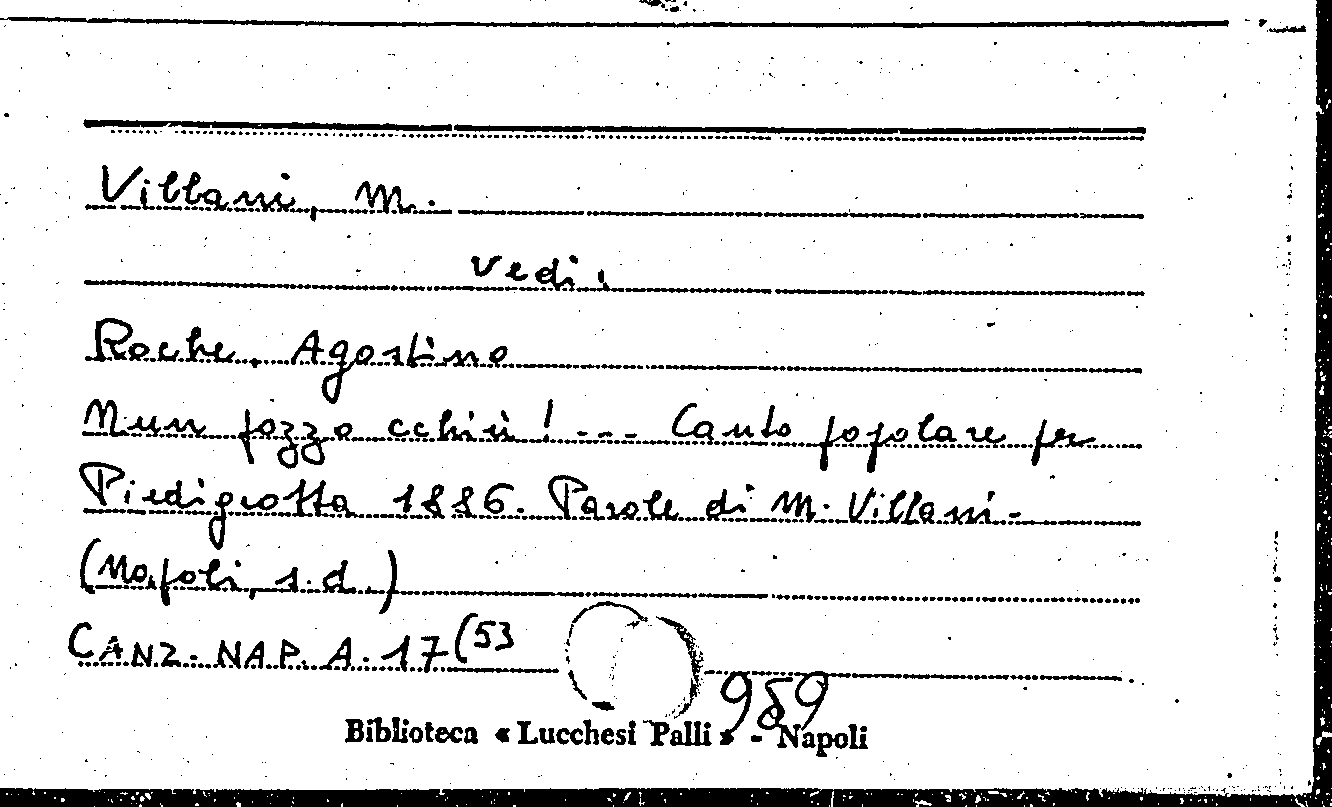 Villani, M.
Vedi:
Roche, Agostino
Nun pozzo cchiù!... Canto popolare per
Piedigrotta 1886. Parole di M. Villani.
(Napoli, s.d.)
CANZ. NAP. A. 17(53
959
Biblioteca « Lucchesi Palli » - Napoli